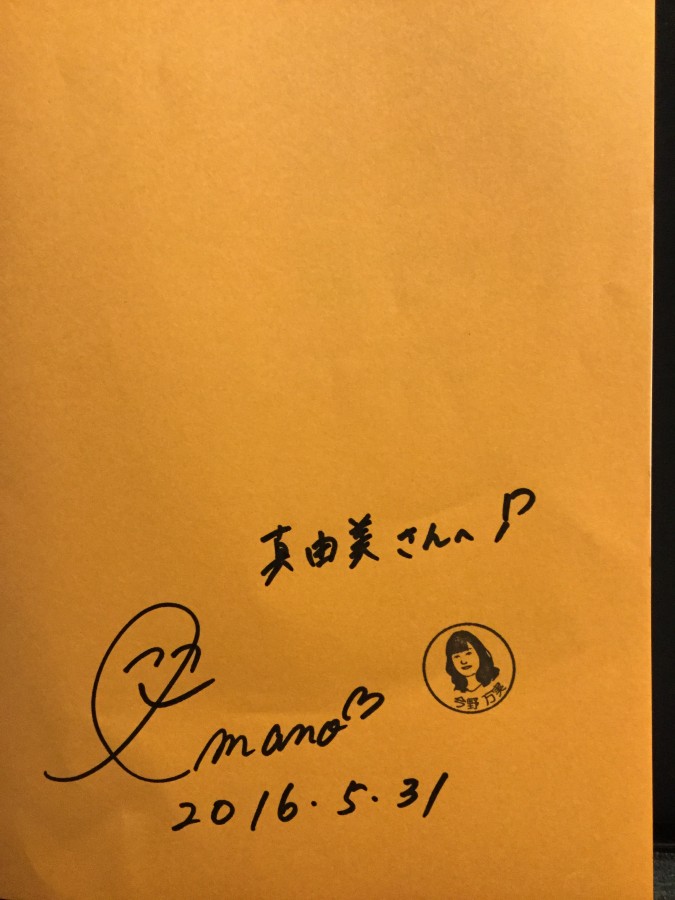 真由美さんへ
mano
今野 万実
2016.5.31